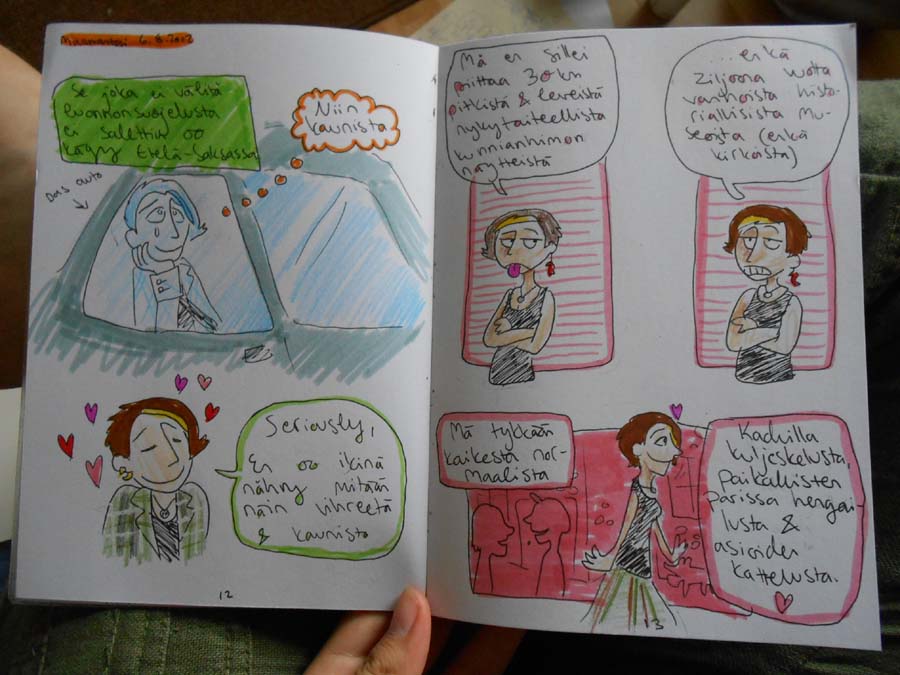 Maanantai 6.8.2012
Se joka ei välitä
luonnonsuojelusta
ei salettiin oo
käyny Etelä-Saksassa
Niin
kaunista
Das auto
Seriously,
En oo ikinä
nähny mitään
näin vihreetä
& kaunista
12
Mä en sillei
piittaa 30 km
pitkistä & leveistä
nykytaiteellista
kunnianhimon
näytteistä
...enkä
ziljoona vuotta
vanhoista histo-
riallisista mu-
seoista (enkä
kirkoista)
Mä tykkään
kaikesta nor-
maalista
Kaduilla
kuljeskelusta,
paikallisten
parissa hengai-
lusta &
asioiden
kattelusta.
13